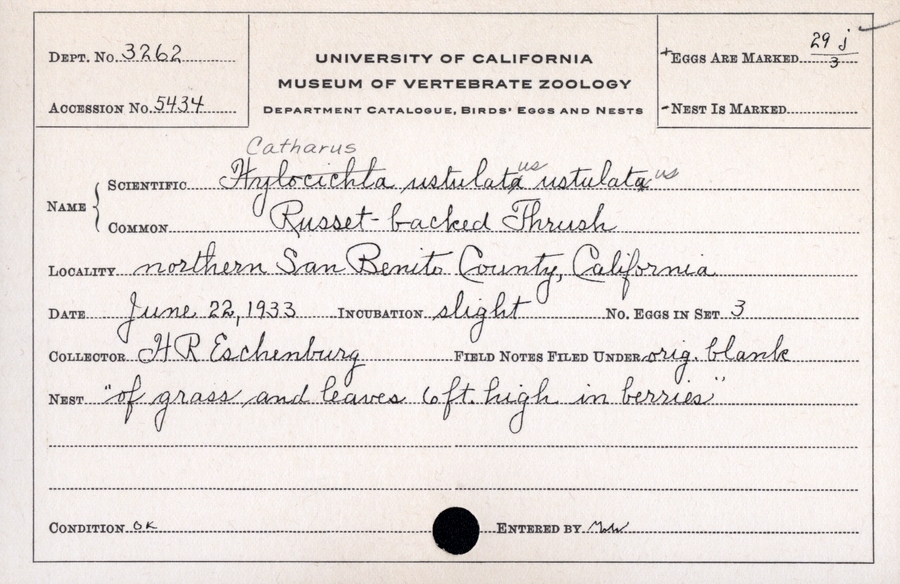 Dept. No. 3262
Accession No. 5434
UNIVERSITY OF CALIFORNIA
MUSEUM OF VERTEBRATE ZOOLOGY
Department Catalogue, Birds' Eggs and Nests
+Eggs Are Marked 29 j/3
-Nest Is Marked
Catharus
Name { Scientific Hylocichla ustulata us ustulata us
Common Russet-backed Thrush
Locality northern San Benito County, California
Date June 22, 1933 Incubation slight No. Eggs in Set 3
Collector H R Eschenburg Field Notes Filed Under orig. blank
Nest "of grass and leaves 6 ft. high in berries"
Condition OK Entered by